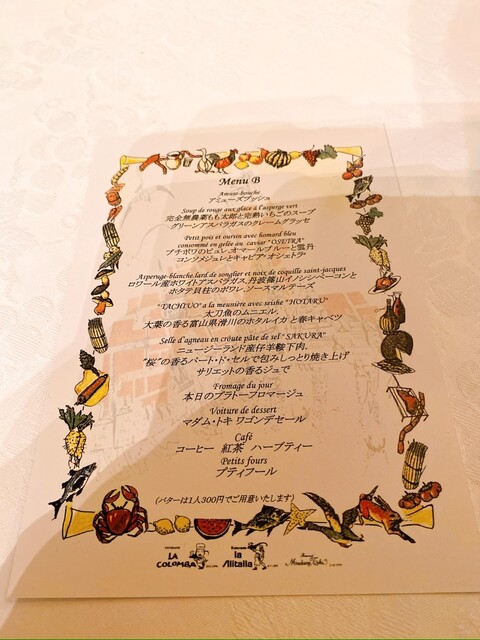 Menu B
Amuse-bouche
アミューズブッシュ
Soup de rouge aux glace à l'asperge vert
完全無農薬もも太郎と完熟いちごのスープ
グリーンアスパラガスのクレームグラッセ
Petit pois et oursin avec homard bleu
consommé en gelée au caviar "OSETRA"
プチポワのピュレ、オマールブルーと雲丹
コンソメジュレとキャビア・オシェトラ
Asperuge-blanche.lard de songlier et noix de coquille saint-jacques
ロワール産ホワイトアスパラガス、丹波篠山イノシシベーコンと
ホタテ貝柱のポワレ、ソースマルテーズ
"TACHI UO" a la meunière avec seiche "HOTARU"
太刀魚のムニエル、
大葉の香る富山県滑川のホタルイカ と春キャベツ
Selle d'agneau en croûte pâte de sel "SAKURA"
ニュージーランド産仔羊鞍下肉、
"桜"の香るパート・ド・セルで包みしっとり焼き上げ
サリエットの香るジュで
Fromage du jour
本日のプラトーフロマージュ
Voiture de dessert
マダム・トキ ワゴンデセール
Café
コーヒー 紅茶 ハーブティー
Petits fours
プティフール
(バターは1人300円でご用意いたします)
LA COLOMBA
la Alitalia
Madame Toki